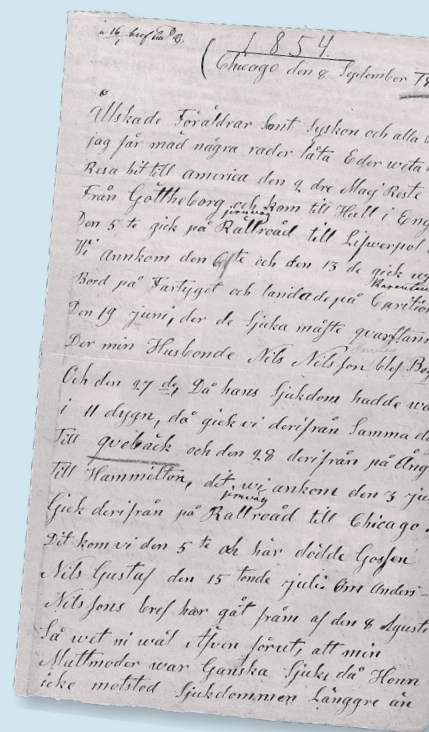 1854
Chicago den 8 September 18
Älskade Föräldrar Samt Syskon och alla
jag får med några rader låta Eder weta
Resa hit till america den 2 dre Maj Reste
Från Göttheborg och kom till Hull i Eng
jernväg
Den 5 te gick på Rallroåd till Lifwerpol
Wi Annkom den 6te och den 13 de gick wi
Bord på Fartyget och landade på
Den 19 juni, der de sjuka måste quarstann
Der min Husbonde Nils Nilsson blef
Och den 27 de, Då hans Sjukdom hadde wa
i 11 dygn, då gick vi derifrån Samma d
Till queback och den 28 derifrån på Ång
Till Hammelton, dit wi ankom den 3 ju
jernväg
Gick derifrån på Rallroåd till Chicago.
Dit kom vi den 5 te och här dödde Gossen
Nils Gustaf den 15 tonde juli Om Anders
Nilssons bref har gåt fram af den 8 Agusti
Så wet ni wäl Äfven förut, att min
Mattmoder war Ganska Sjuk, då Honn
icke motstod Sjukdommen Länggre än